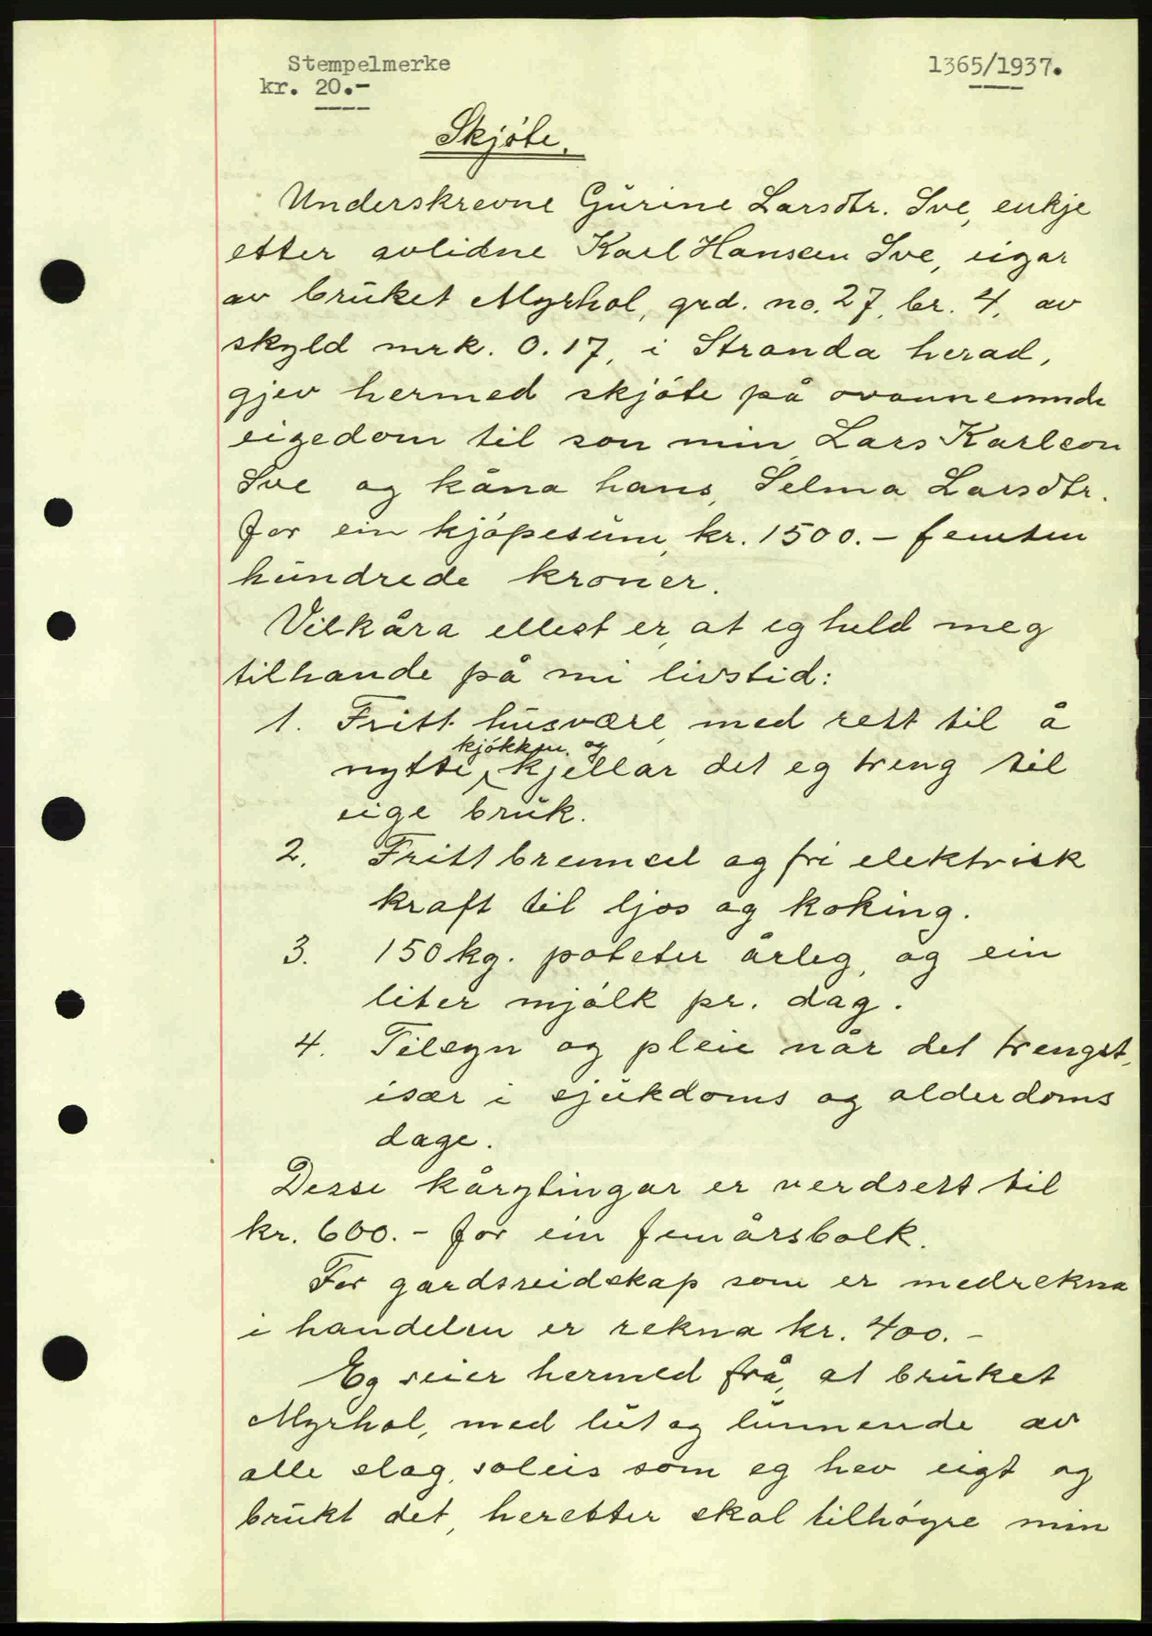 Stempelmerke
kr. 20.-
1365/1937.
Skjøte.
Underskrevne Gurine Larsdtr. Sve, enkje
etter avlidne Karl Hansen Sve, eigar
av bruket Myrhol, grd. no. 27, br. 4, av
skyld mrk. 0.17, i Stranda herad,
gjev hermed skjøte på ovannemnde
eigedom til son min, Lars Karlson
Sve og kåna hans, Selma Larsdtr.
for ein kjøpesum, kr. 1500.- femten
hundrede kroner.
Vilkåra ellest er, at eg held meg
tilhande på mi livstid:
1. Fritt husvære, med rett til å
kjøkken og
nytte kjellar det eg treng til
eige bruk.
2. Fritt brennsel og fri elektrisk
kraft til ljos og koking.
3. 150 kg. poteter årleg, og ein
liter mjølk pr. dag.
4. Tilsyn og pleie når det trengst,
især i sjukdoms og alderdoms
dage.
Desse kårytingar er verdsett til
kr. 600.- for ein femårsbolk.
For gardsreidskap som er medrekna
i handelen er rekna kr. 400.-
Eg seier hermed frå, at bruket
Myrhol, med lut og lunnende av
alle slag, soleis som eg hev eigt og
brukt det, heretter skal tilhøyre min